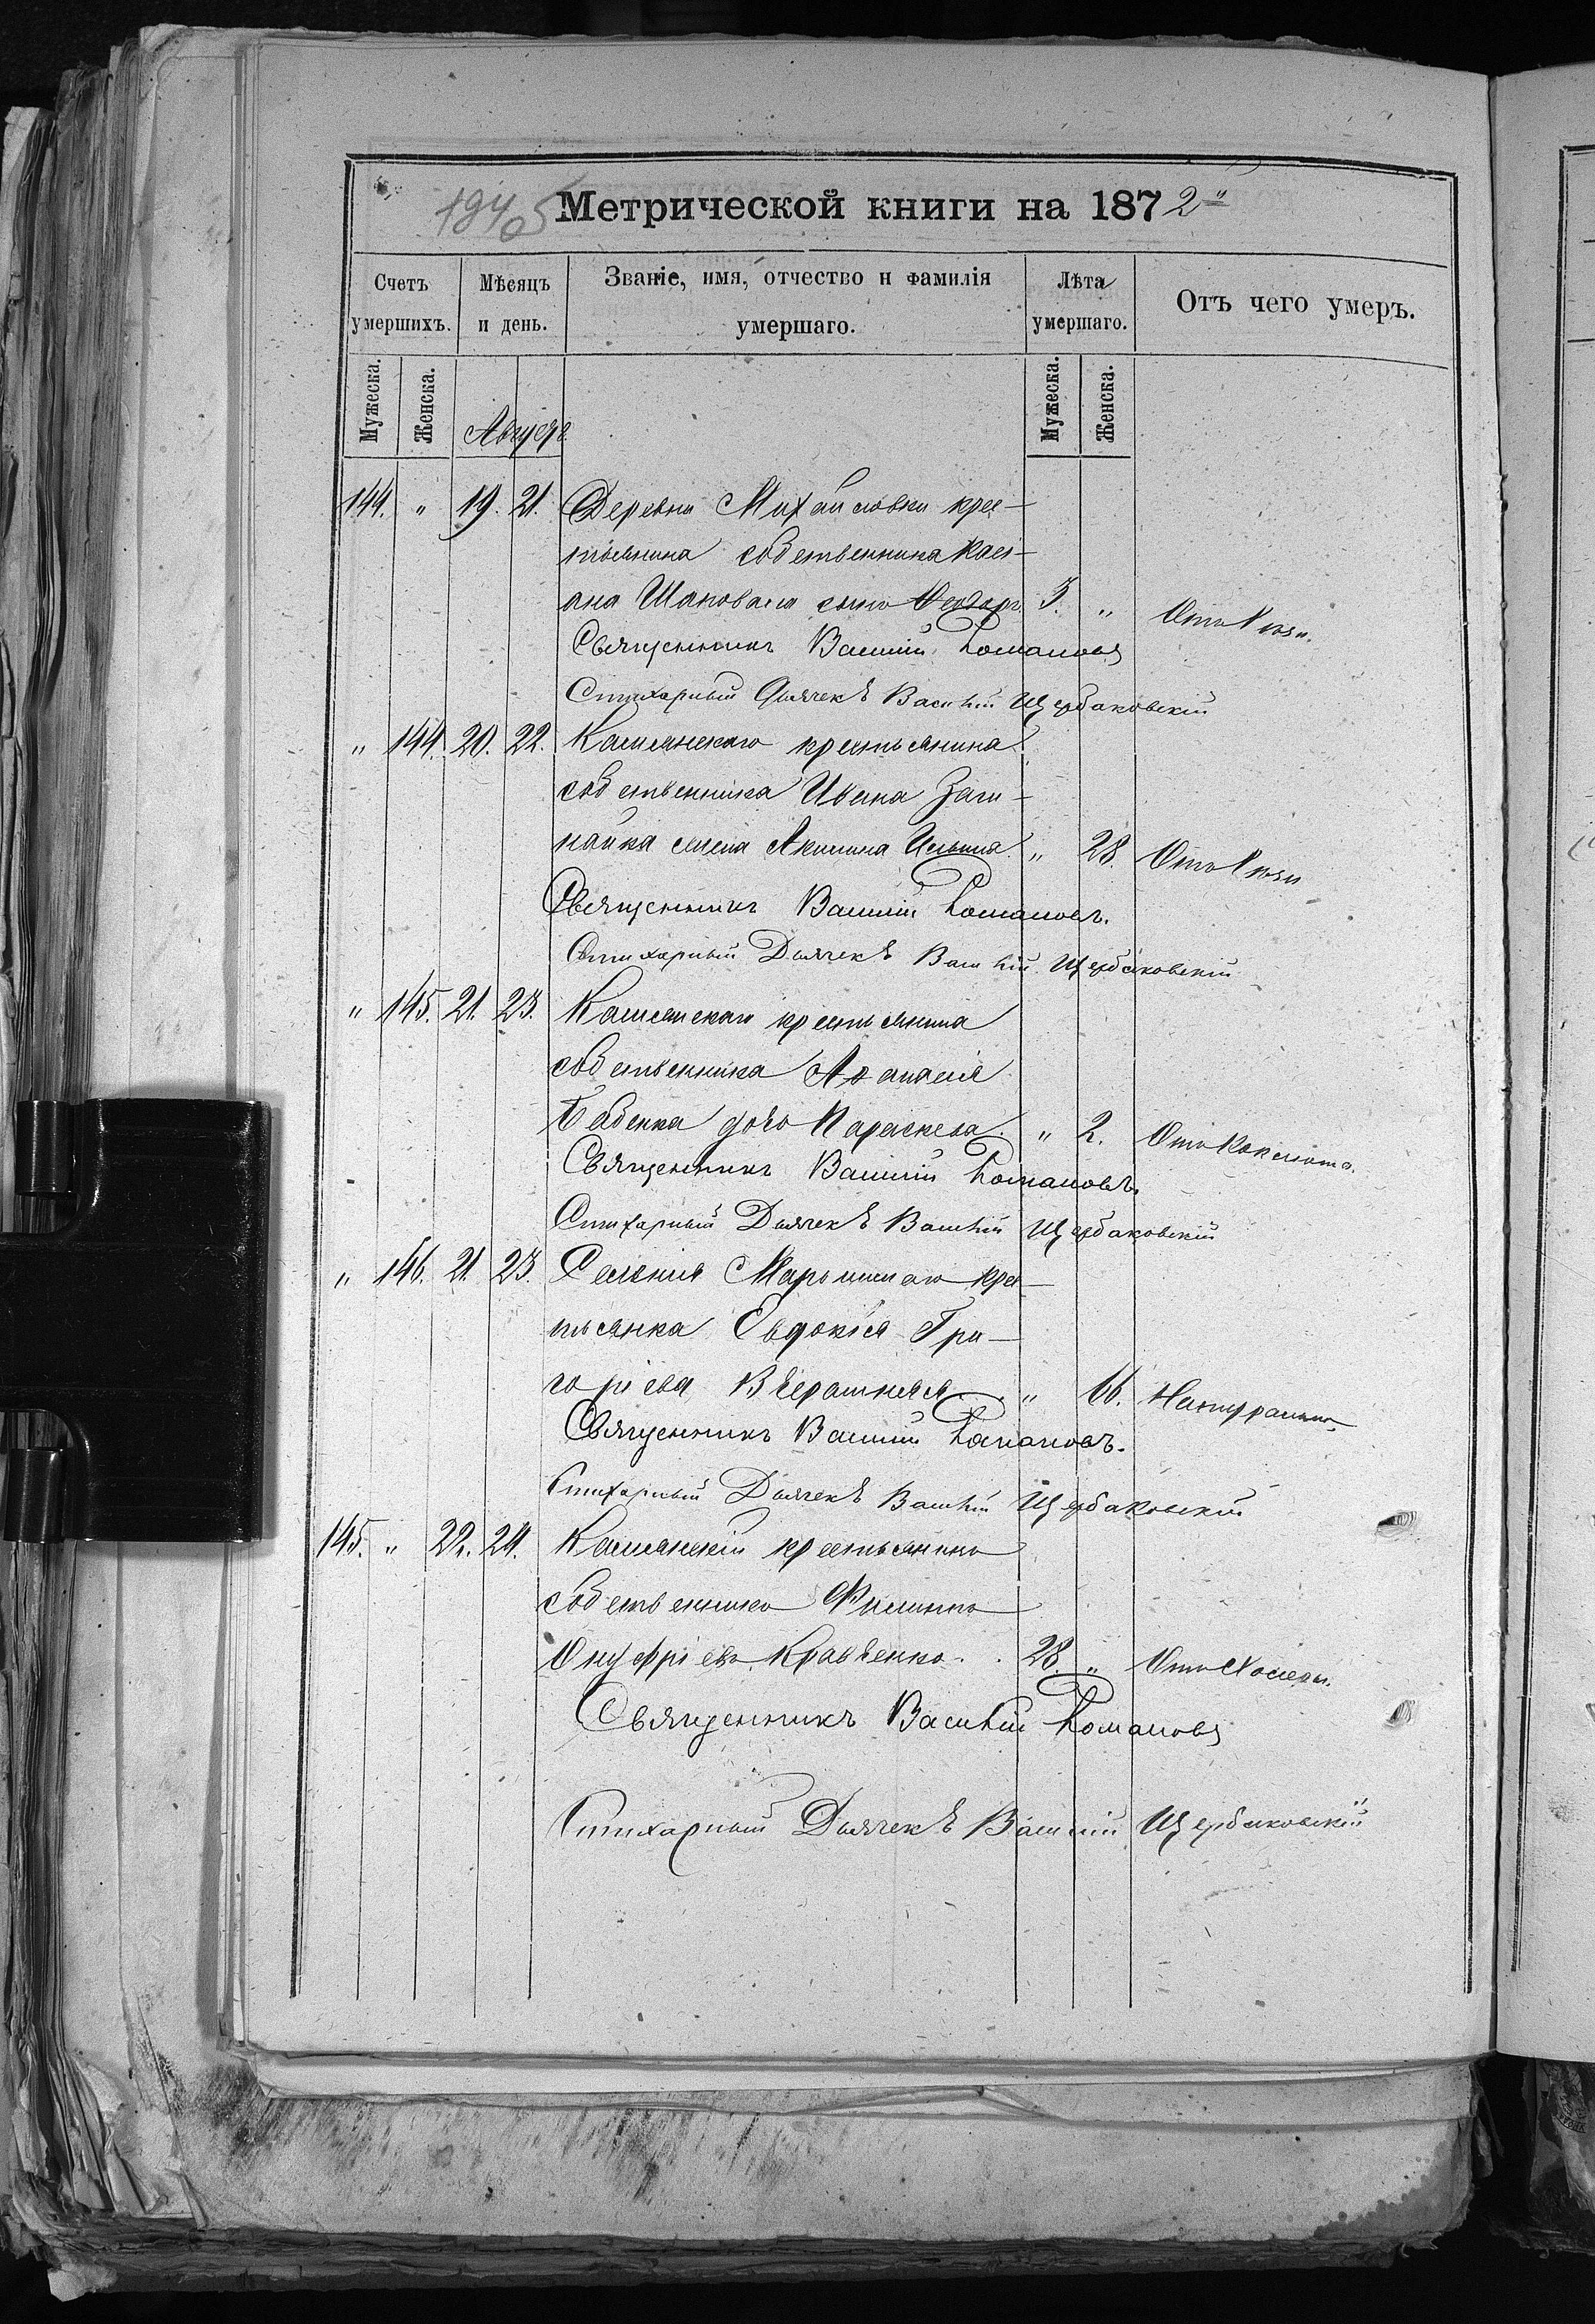 Метрической книги на 1872й
Счетъ умершихъ.
Мѣсяцъ и день.
Званіе, имя, отчество и фамилія умершаго.
Лѣта умершаго.
Отъ чего умеръ.
Мужеска. Женска. Августъ. Мужеска. Женска.
144. " 19. 21. Деревни Михайловки крес-
тьянина собственника Касі-
ана Шаповала сынъ Ѳеодоръ. 3. "
Священникъ Василій Романовъ
Стихарный Дьячекъ Василій Щербаковскій
" 144. 20. 22. Камянскаго крестьянина
собственника Ивана
жена Акилина Ильина. " 28.
Священникъ Василій Романовъ.
Стихарный Дьячекъ Василій Щербаковскій
" 145. 21. 23. Камянскаго крестьянина
собственника Аѳанасія
Бабенка дочь Параскева " 2. Отъ Коклюша.
Священникъ Василій Романовъ.
Стихарный Дьячекъ Василій Щербаковскій
" 146. 21. 23. Селенія крес-
тьянка Евдокія Гри-
горіева " 66. Натурально
Священникъ Василій Романовъ.
Стихарный Дьячекъ Василій Щербаковскій
145. " 22. 24. Камянскій крестьянинъ
собственникъ Филиппъ
Онуфріевъ Кравченко. . 28. " Отъ Холеры.
Священникъ Василій Романовъ
Стихарный Дьячекъ Василій Щербаковскій